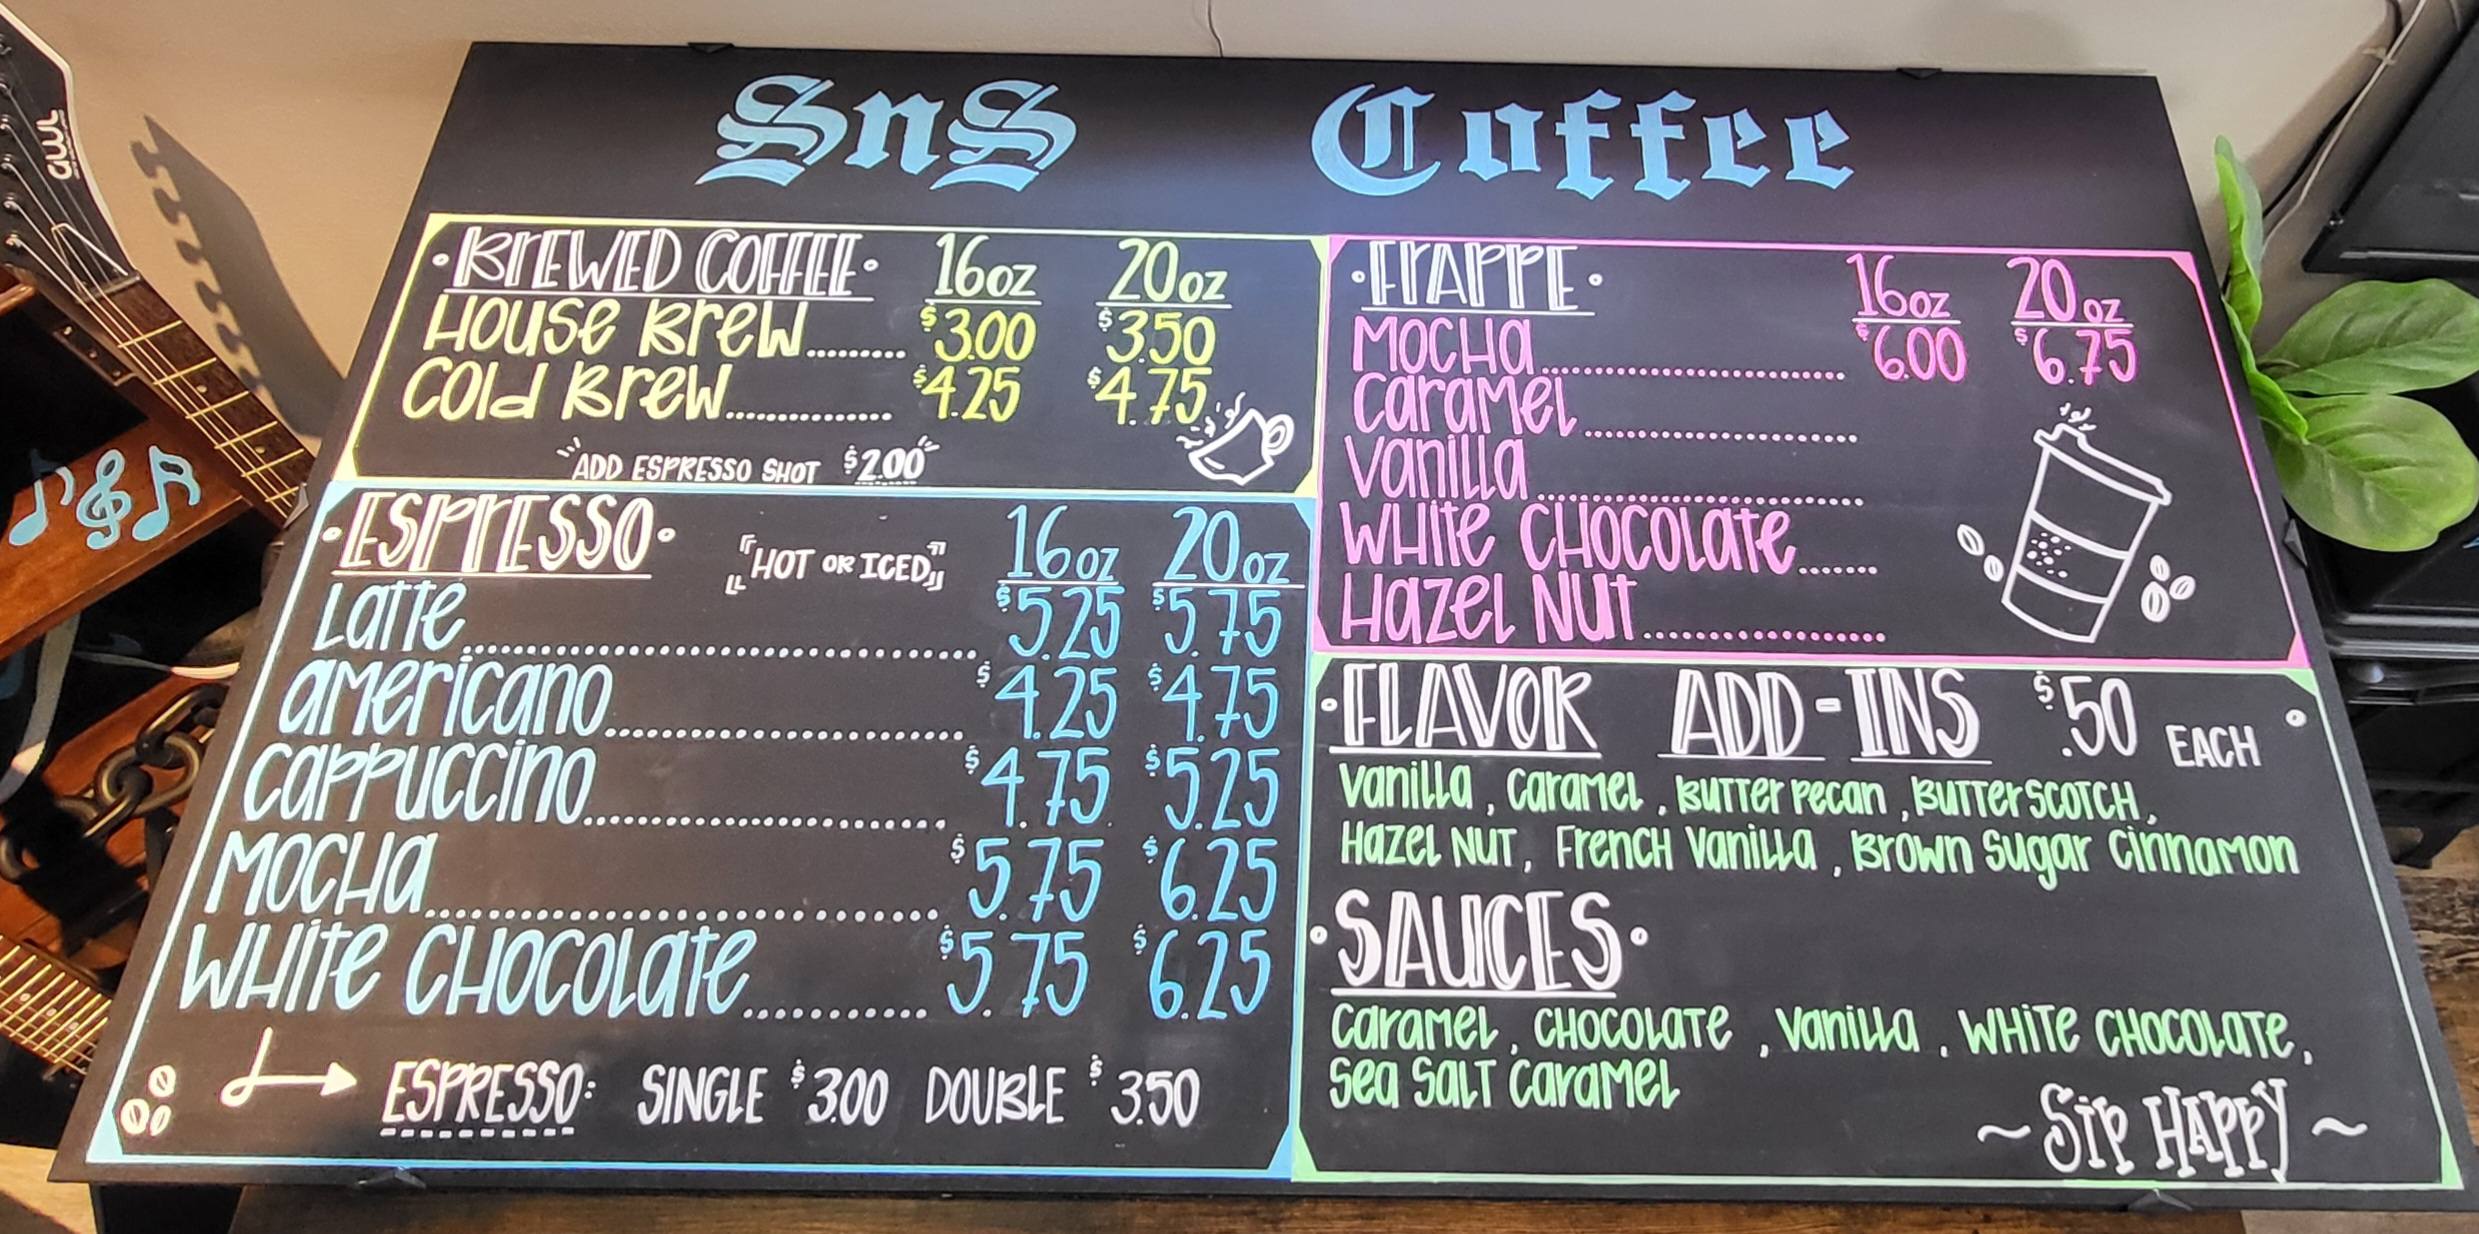 SnS Coffee
BREWED COFFEE 16oz 20oz
House Brew......... $3.00 $3.50
Cold Brew............. $4.25 $4.75
ADD ESPRESSO SHOT $2.00
ESPRESSO "HOT OR ICED" 16oz 20oz
Latte........................................ $5.25 $5.75
americano............................ $4.25 $4.75
cappuccino........................... $4.75 $5.25
Mocha........................................ $5.75 $6.25
White Chocolate............ $5.75 $6.25
ESPRESSO: SINGLE $3.00 DOUBLE $3.50
FRAPPE 16oz 20oz
Mocha................................ $6.00 $6.75
caramel.............................
vanilla...................................
White Chocolate.......
Hazel Nut....................
FLAVOR ADD-INS $.50 EACH
Vanilla, Caramel, Butter pecan, Butterscotch,
Hazel Nut, French Vanilla, Brown Sugar Cinnamon
SAUCES
Caramel, Chocolate, Vanilla, White Chocolate,
Sea Salt Caramel
~ Sip Happy ~